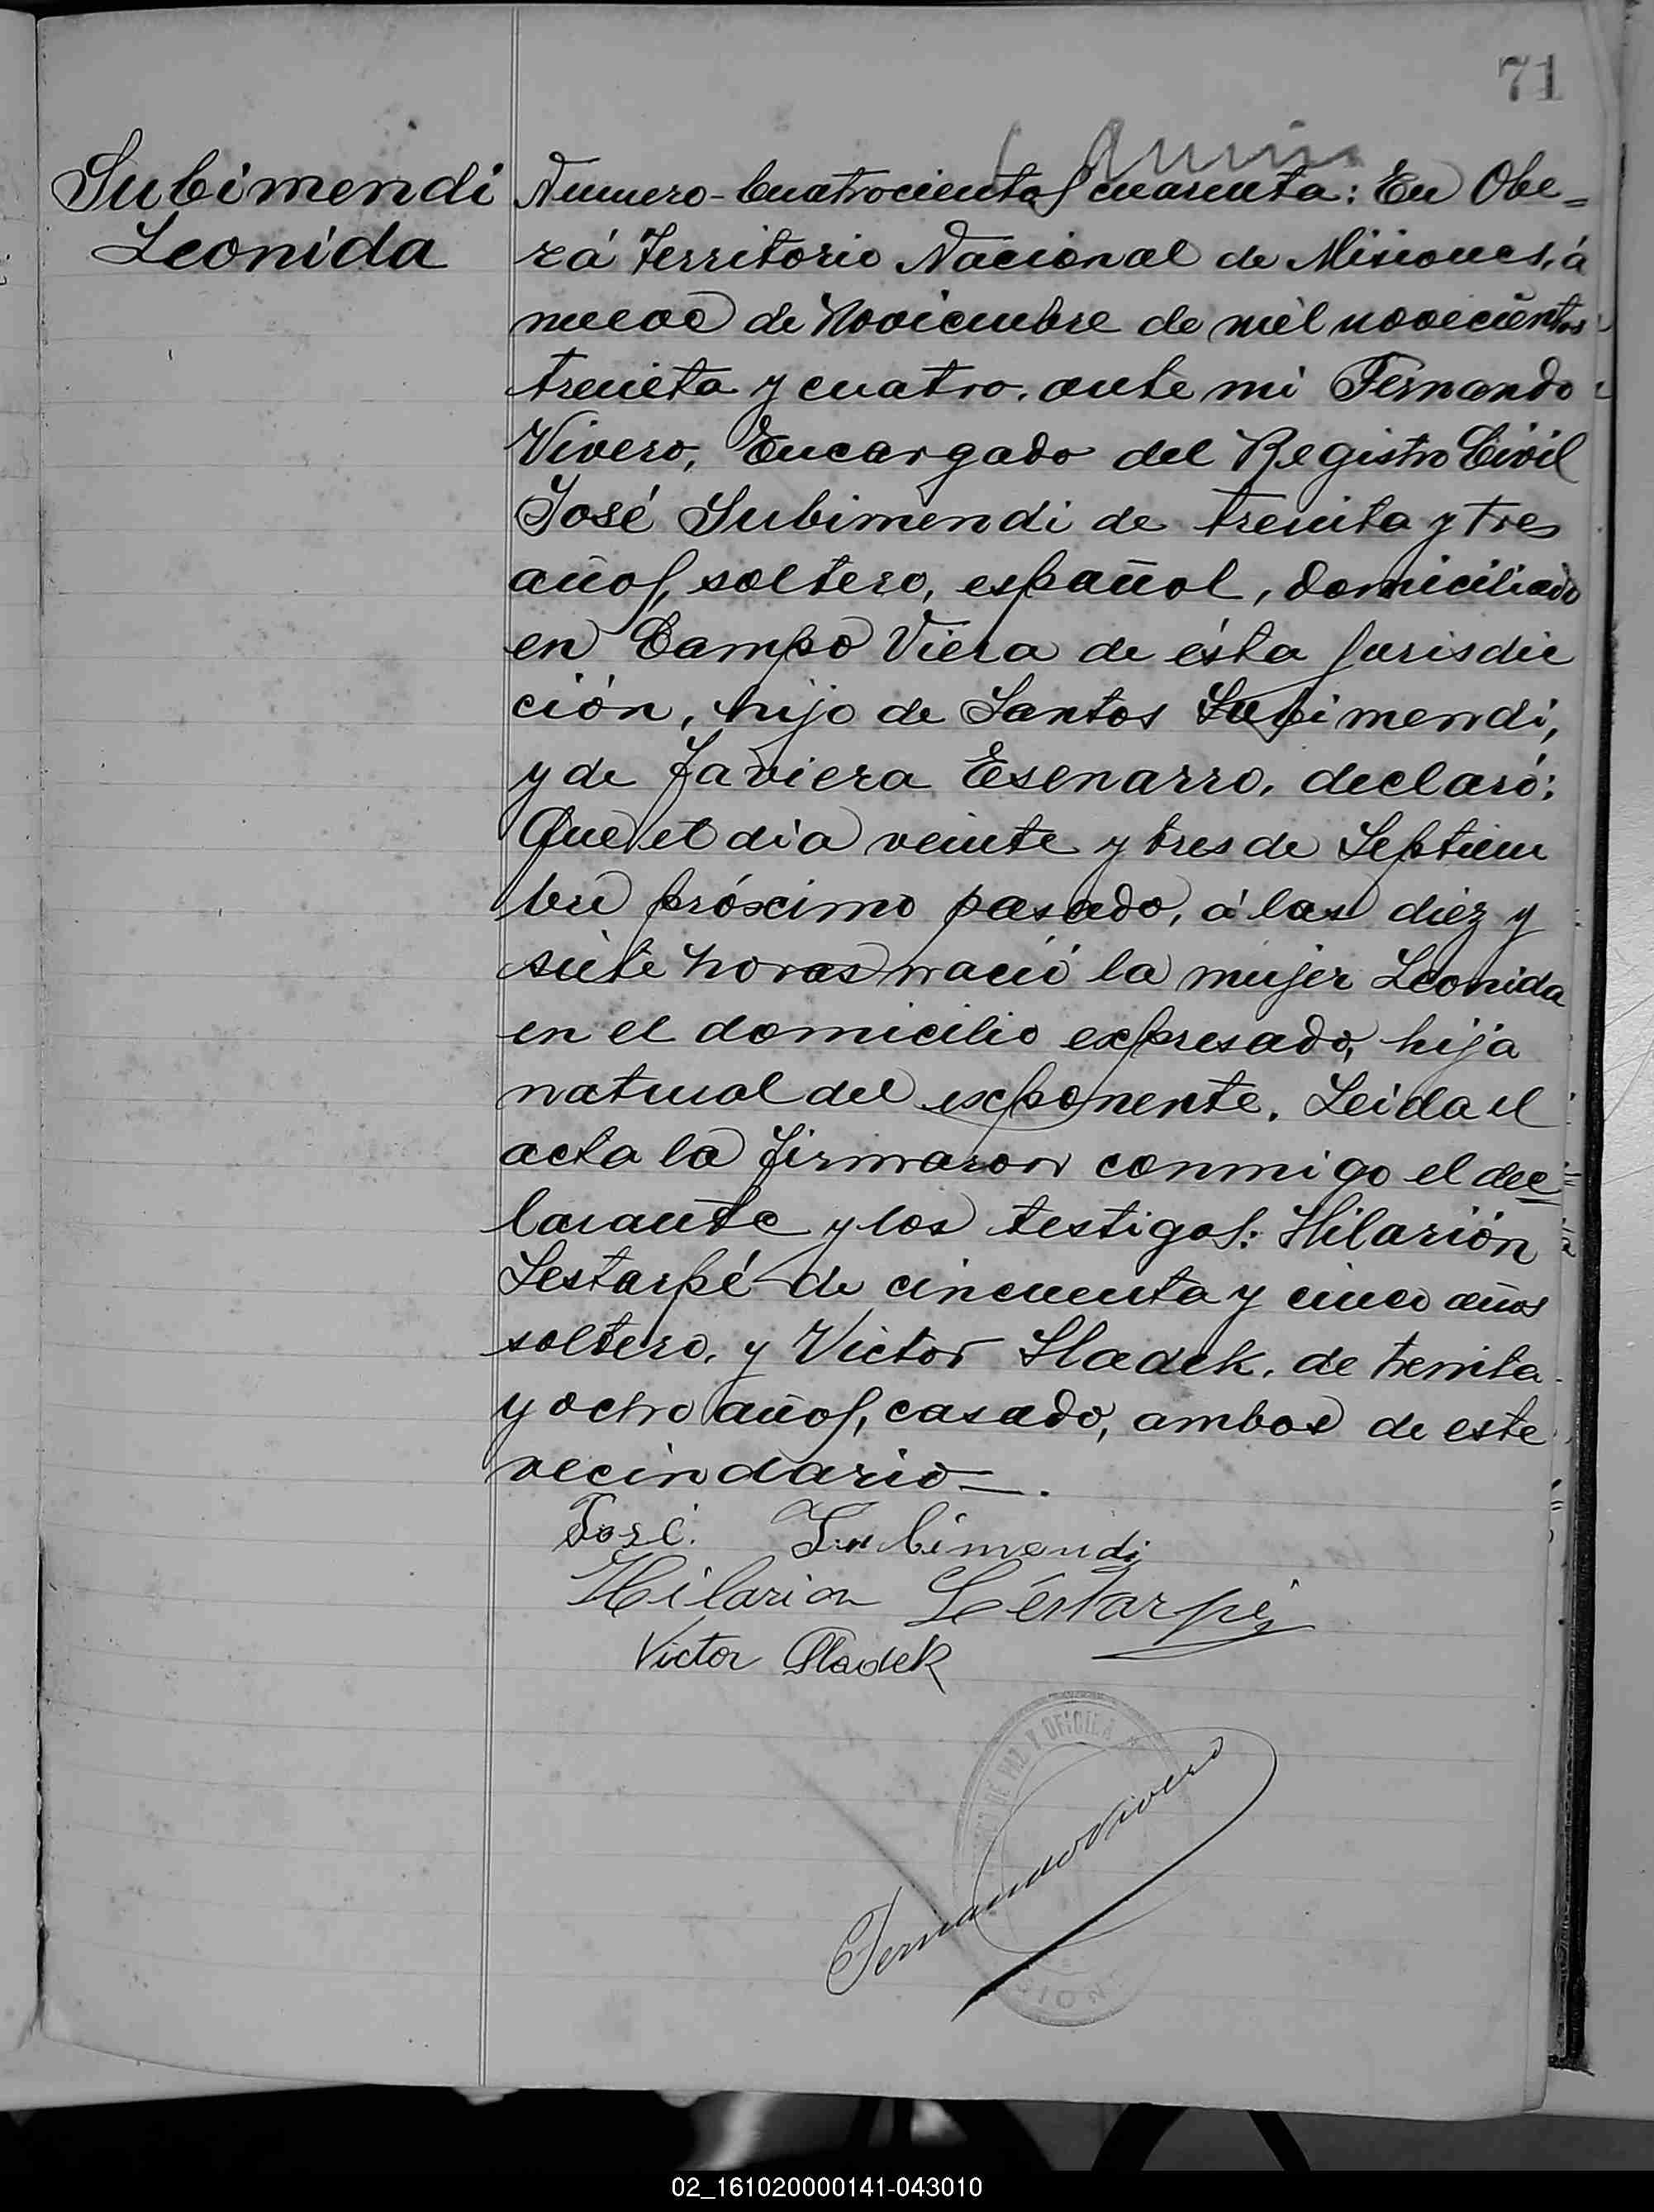 71
Subimendi
Leonida
Numero-Cuatrocientos cuarenta: En Obe=
rá Territorio Nacional de Misiones, á
nueve de Noviembre de mil novecientos
treinta y cuatro, ante mi Fernando
Vivero, Encargado del Registro Civil
José Subimendi de treinta y tres
años, soltero, español, domiciliado
en Campo Viera de ésta Jurisdic
ción, hijo de Santos Subimendi,
y de Javiera Esenarro, declaró:
Que el dia veinte y tres de Septiem
bre próximo pasado, á las diez y
siete horas nació la mujer Leonida
en el domicilio expresado, hija
natural del exponente. Leida el
acta la firmaron conmigo el dec
larante y los testigos: Hilarión
Lestarpé de cincuenta y cinco años
soltero, y Victor Sladek, de treinta
y ocho años, casado, ambos de este
vecindario—.
José. Subimendi
Hilarion Léstarpé
Victor Sladek
DE PAZ Y OFICINA
Fernando Vivero
02_161020000141-043010